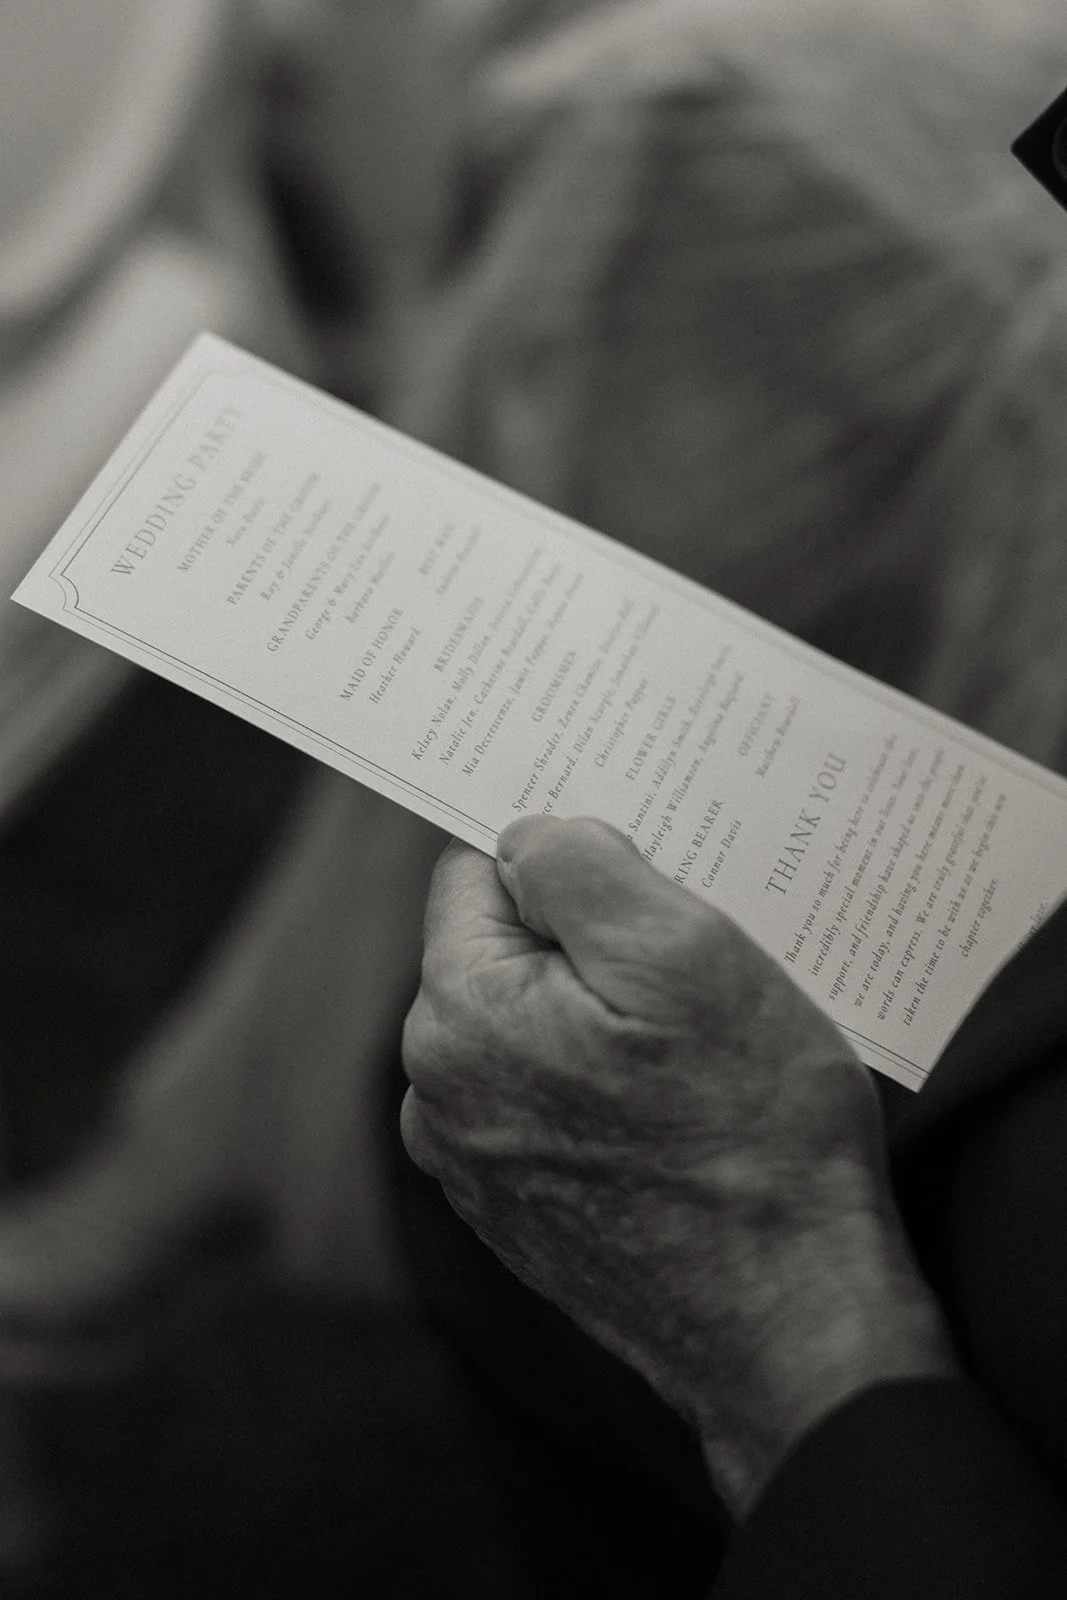 WEDDING PARTY
MOTHER OF THE BRIDE
Davis
PARENTS OF THE GROOM
Ray & Janelle
GRANDPARENTS OF THE GROOM
George & Mary Lou
Barbara
MAID OF HONOR
Heather Howard
BEST MAN
Andrew
BRIDESMAIDS
Kelsey Nolan, Molly Dillon, Jessica
Natalie Jen, Catherine Randall, Calli
Mia Decrescenzo, Jamie Pappas,
GROOMSMEN
Spencer Shrader, Zenen Chamizo,
Bernard, Dilan Scargle, Jonathan
Christopher Pappas
FLOWER GIRLS
Santini, Addilyn Smith, Smith,
Hayleigh Williamson, Angelina
OFFICIANT
Matthew Randall
RING BEARER
Connor Davis
THANK YOU
Thank you so much for being here to celebrate this
incredibly special moment in our lives. Your love,
support, and friendship have shaped us into the people
we are today, and having you here means more than
words can express. We are truly grateful that you've
taken the time to be with us as we begin this new
chapter together.